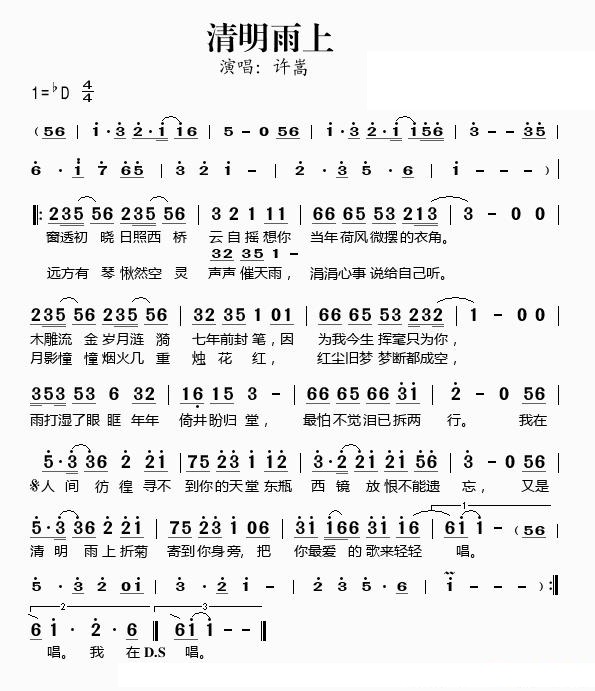 清明雨上
演唱：许嵩
1=♭D 4/4
（56 | i·3 2·i i16 | 5 - 0 56 | i·3 2·i i156 | 3 - - 35 |
6 · i 7 65 | 3 2 i - | 2 · 3 5 · 6 | i - - - ）|
‖: 235 56 235 56 | 3 2 1 11 | 66 65 53 213 | 3 - 0 0 |
窗透初 晓 日照西 桥 云 自 摇 想你 当年 荷风 微摆 的衣角。
32 35 1 -
远方有 琴 愀然空 灵 声声 催天雨， 涓涓心事 说给自己听。
235 56 235 56 | 32 35 1 01 | 66 65 53 232 | 1 - 0 0 |
木雕流 金 岁月涟 漪 七年前封 笔，因 为我今生 挥毫只为你，
月影憧 憧 烟火几 重 烛 花 红， 红尘旧梦 梦断都成空，
353 53 6 32 | 16 15 3 - | 66 65 66 31 | 2 - 0 56 |
雨打湿了眼 眶 年年 倚井盼归 堂， 最怕不觉泪已拆两 行。 我在
5·3 36 2 21 | 75 23 1 12 | 3·2 21 21 56 | 3 - 0 56 |
𝄋人 间 彷 徨 寻不 到你的天堂 东瓶 西 镜 放 恨不能遗 忘， 又是
5·3 36 2 21 | 75 23 1 06 | 31 166 31 16 | 1 61 1 - （56 |
清 明 雨上折菊 寄到你身旁，把 你最爱 的 歌来轻轻 唱。
5 · 3 2 0i | 3 · 2 i - | 2 3 5 · 6 | i - - - ）:‖
2 3
6 1 · 2 · 6 ‖ 61 1 - - ‖
唱。 我 在D.S 唱。